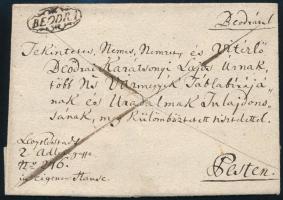 BEODRA
Beodráról
Tekintetes, Nemes, Nemzetes, és Vitézlő
Beodrai Karátsonyi Lajos Urnak,
több Ns Vármegyék Táblabirájá-
nak és Uradalmak Tulajdono-
sának, megkülömböztetett tisztelettel.
Leopoldstadt
2. Adler gasse
No 216.
in eigener Hause.
Pesten.